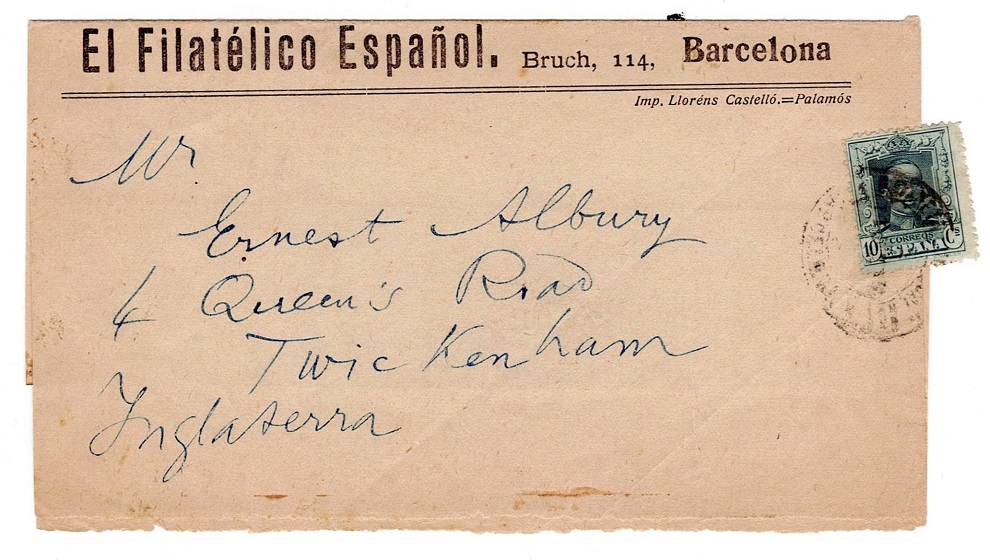 El Filatélico Español. Bruch, 114, Barcelona
Imp. Lloréns Castelló.=Palamós
Mr.
Ernest Albury
4 Queen's Road
Twickenham
Inglaterra
CORREOS
10 ESPAÑA Cs